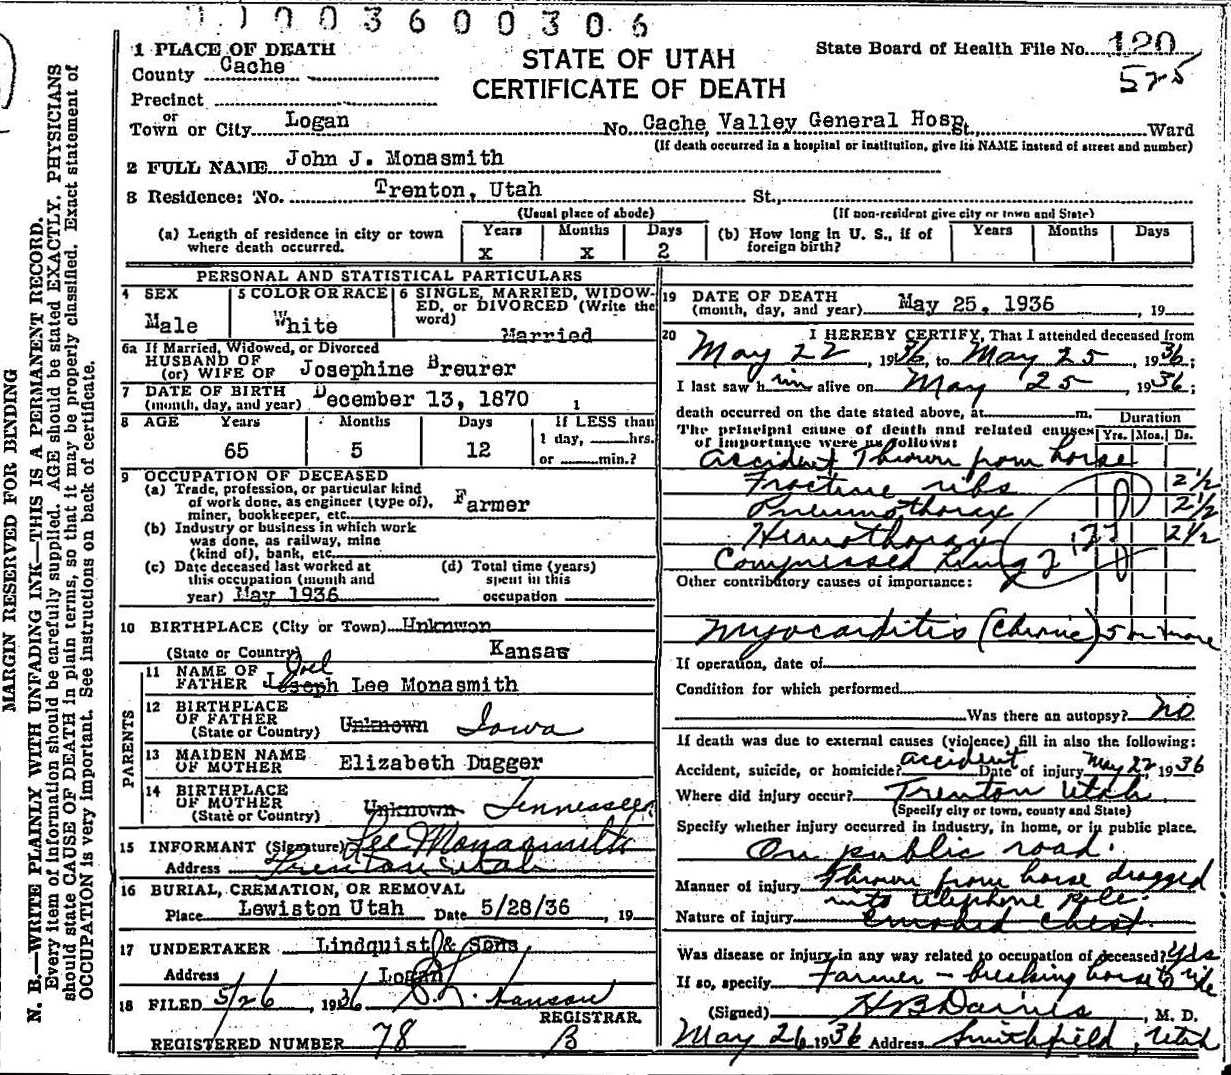 1 1 0 0 3 6 0 0 3 0 6
1 PLACE OF DEATH
County Cache
STATE OF UTAH
CERTIFICATE OF DEATH
State Board of Health File No. 120
525
Precinct
or
Town or City Logan No. Cache Valley General Hosp. St., Ward
(If death occurred in a hospital or institution, give its NAME instead of street and number)
2 FULL NAME John J. Monasmith
3 Residence: No. Trenton, Utah St.,
(Usual place of abode) (If non-resident give city or town and State)
(a) Length of residence in city or town where death occurred. Years x Months x Days 2
(b) How long in U. S., if of foreign birth? Years Months Days
PERSONAL AND STATISTICAL PARTICULARS
4 SEX Male
5 COLOR OR RACE White
6 SINGLE, MARRIED, WIDOWED, or DIVORCED (Write the word) Married
6a If Married, Widowed, or Divorced
HUSBAND OF
(or) WIFE OF Josephine Breurer
7 DATE OF BIRTH
(month, day, and year) December 13, 1870 1
8 AGE Years 65 Months 5 Days 12 If LESS than 1 day, hrs. or min.?
9 OCCUPATION OF DECEASED
(a) Trade, profession, or particular kind of work done, as engineer (type of), miner, bookkeeper, etc. Farmer
(b) Industry or business in which work was done, as railway, mine (kind of), bank, etc.
(c) Date deceased last worked at this occupation (month and year) May 1936
(d) Total time (years) spent in this occupation
10 BIRTHPLACE (City or Town) Unknwon
(State or Country) Kansas
PARENTS
11 NAME OF FATHER Joseph Joel Lee Monasmith
12 BIRTHPLACE OF FATHER
(State or Country) Unknown Iowa
13 MAIDEN NAME OF MOTHER Elizabeth Dugger
14 BIRTHPLACE OF MOTHER
(State or Country) Unknown Tennessee
15 INFORMANT (Signature) Lee Monasmith
Address Trenton Utah
16 BURIAL, CREMATION, OR REMOVAL
Place Lewiston Utah Date 5/28/36, 19
17 UNDERTAKER Lindquist & Sons
Address Logan
18 FILED 5/26, 1936 Hanson
REGISTRAR.
REGISTERED NUMBER 78 B
19 DATE OF DEATH
(month, day, and year) May 25, 1936, 19
20 I HEREBY CERTIFY, That I attended deceased from
May 22, 1936, to May 25 1936;
I last saw him alive on May 25, 1936;
death occurred on the date stated above, at m.
The principal cause of death and related causes of importance were as follows:
Duration
Yrs. Mos. Ds.
Accident Thrown from horse
Fracture ribs 2½
Pneumothorax 2½
Hemothorax 2½
Compressed lung
Other contributory causes of importance:
Myocarditis (Chronic) 5 or more
If operation, date of
Condition for which performed
Was there an autopsy? No
If death was due to external causes (violence) fill in also the following:
Accident, suicide, or homicide? accident Date of injury May 22, 1936
Where did injury occur? Trenton Utah
(Specify city or town, county and State)
Specify whether injury occurred in industry, in home, or in public place.
On public road.
Manner of injury Thrown from horse dragged
into telephone pole.
Nature of injury Crushed chest.
Was disease or injury in any way related to occupation of deceased? Yes
If so, specify Farmer - breaking horse to ride
(Signed) H B Daines, M. D.
May 26, 1936 Address Smithfield, Utah
MARGIN RESERVED FOR BINDING
N. B.—WRITE PLAINLY WITH UNFADING INK—THIS IS A PERMANENT RECORD.
Every item of information should be carefully supplied. AGE should be stated EXACTLY. PHYSICIANS
should state CAUSE OF DEATH in plain terms, so that it may be properly classified. Exact statement of
OCCUPATION is very important. See instructions on back of certificate.